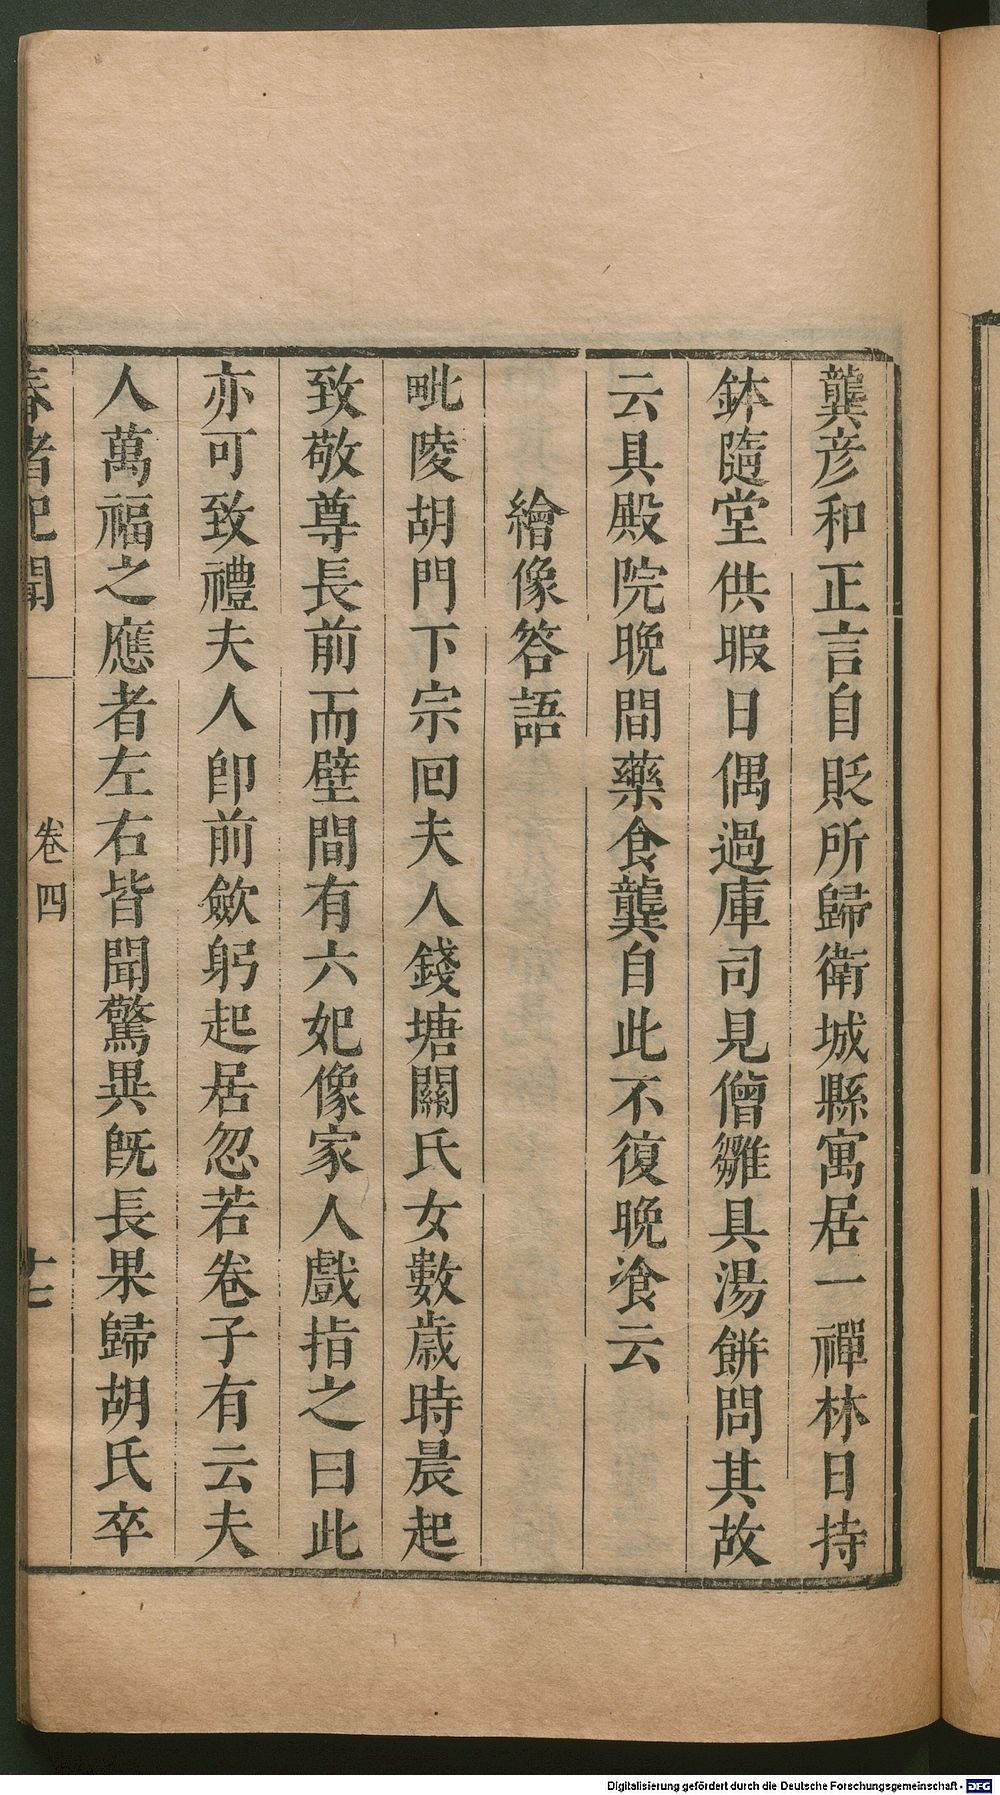 龔彦和正言自貶所歸衛城縣寓居一禪林日持
鉢隨堂供暇日偶過庫司見僧雛具湯餅問其故
云具殿院晩間藥食龔自此不復晩飡云
繪像答語
毗陵胡門下宗回夫人錢塘關氏女數歳時晨起
致敬尊長前而壁間有六妃像家人戲指之曰此
亦可致禮夫人卽前歛躬起居忽若卷子有云夫
人萬福之應者左右皆聞驚異旣長果歸胡氏卒
春渚紀聞
卷四
十七
Digitalisierung gefördert durch die Deutsche Forschungsgemeinschaft - DFG